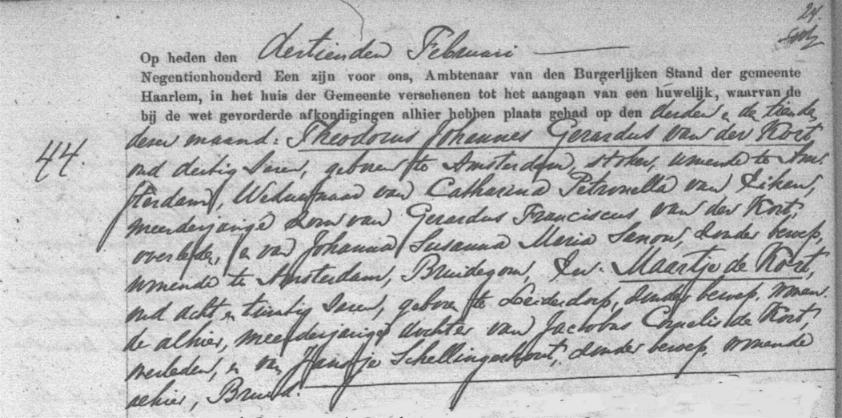 24.
Op heden den dertienden Februari
Negentienhonderd Een zijn voor ons, Ambtenaar van den Burgerlijken Stand der gemeente
Haarlem, in het huis der Gemeente verschenen tot het aangaan van een huwelijk, waarvan de
bij de wet gevorderde afkondigingen alhier hebben plaats gehad op den derden en de tienden
44.
dezer maand: Theodorus Johannes Gerardus van der Kort,
oud dertig Jaren, geboren te Amsterdam, stoker, wonende te Am-
sterdam, Weduwnaar van Catharina Petronella van
meerderjarige Zoon van Gerardus Franciscus van der Kort,
overleden, en van Johanna Susanna Maria zonder beroep,
wonende te Amsterdam, Bruidegom, En. Maartje de Kort,
oud acht en twintig Jaren, geboren te Leiderdorp, zonder beroep, wonen-
de alhier, meerderjarige dochter van Jacobus Cornelis de Kort,
overleden, en van Jansje Schellingerhout, zonder beroep, wonende
alhier, Bruid.